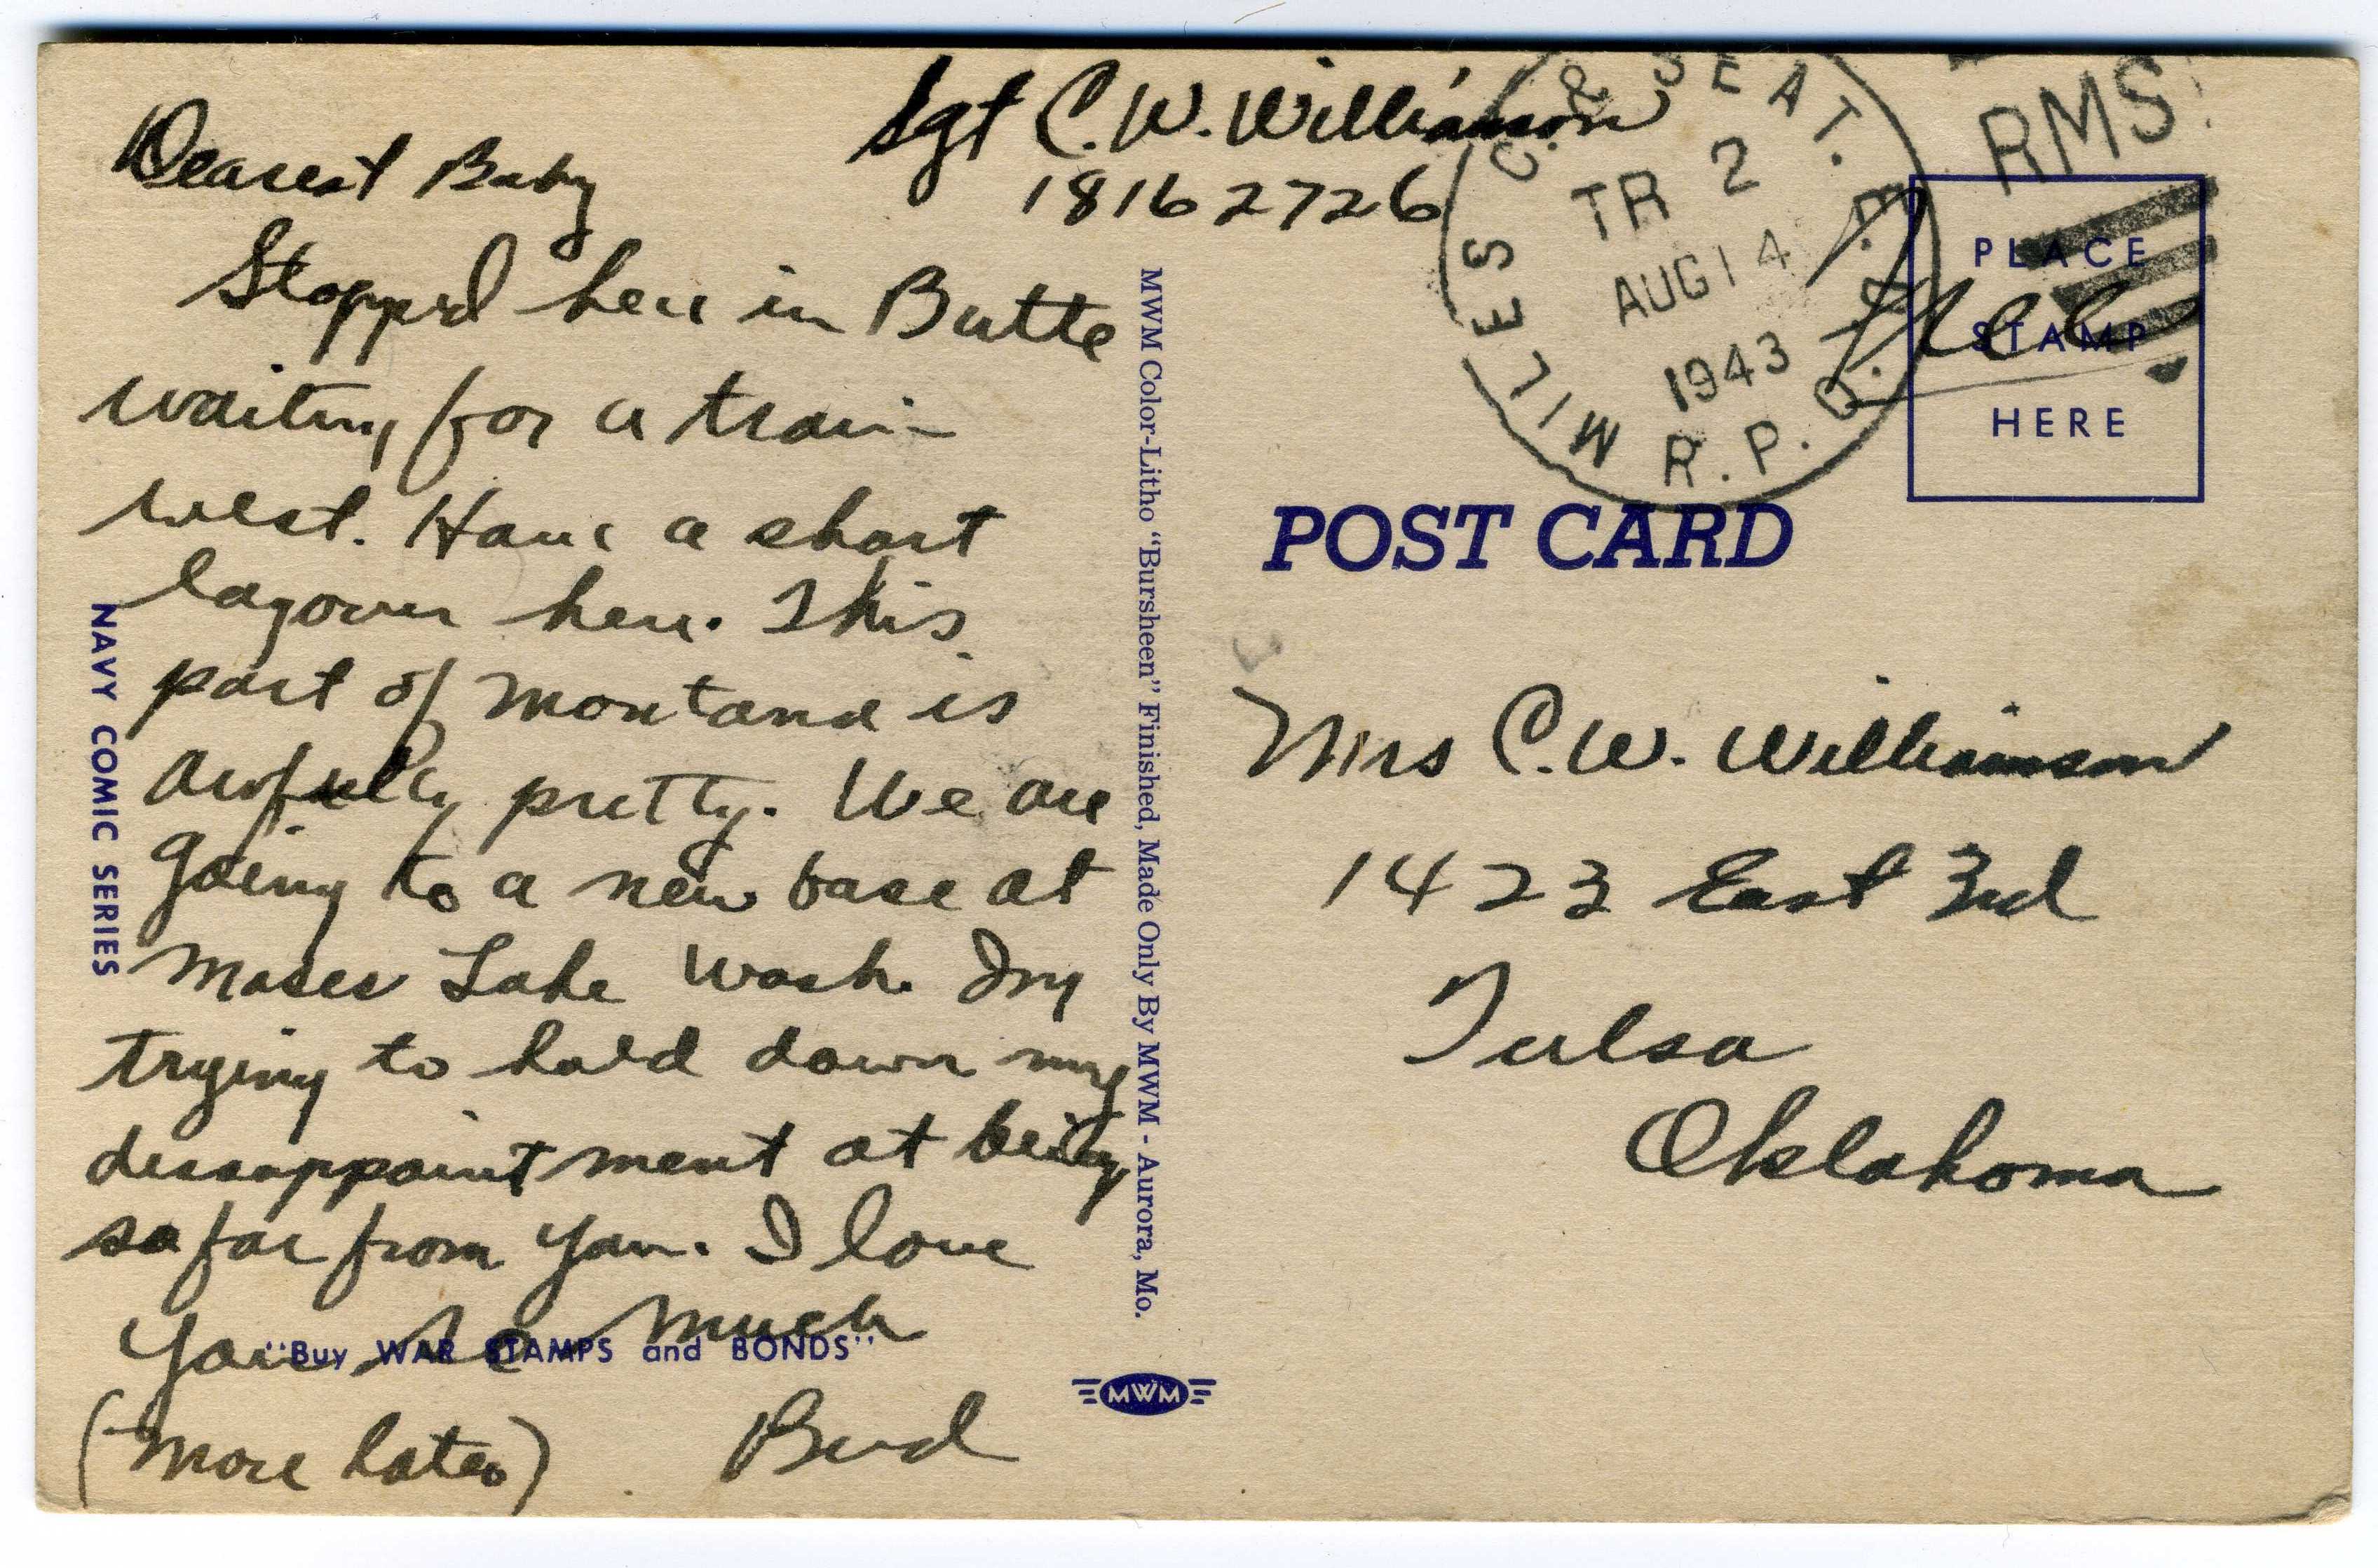 Sgt C.W. Williamson
18162726
Dearest Baby
Stopped here in Butte
waiting for a train
west. Have a short
layover here. This
part of Montana is
awfully pretty. We are
going to a new base at
Moses Lake Wash. Im
trying to hold down my
dissappointment at being
so far from you. I love
you so much
(more later)
Bud
NAVY COMIC SERIES
"Buy WAR STAMPS and BONDS"
MWM Color-Litho "Bursheen" Finished, Made Only By MWM - Aurora, Mo.
MWM
MILES C. & SEAT.
TR 2
AUG 14
1943
R.P.O.
RMS
Free
PLACE
STAMP
HERE
POST CARD
Mrs C.W. Williamson
1423 East 3rd
Tulsa
Oklahoma